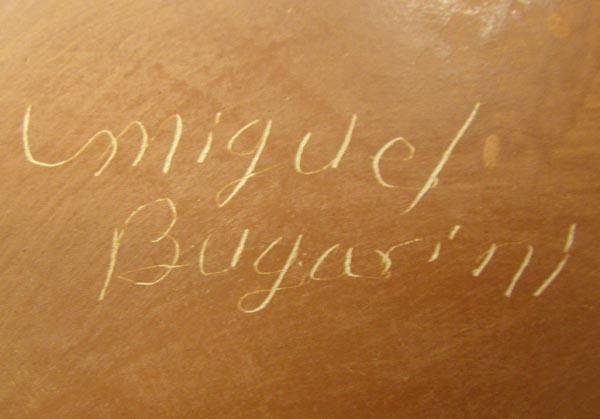 Miguel
Bugarini